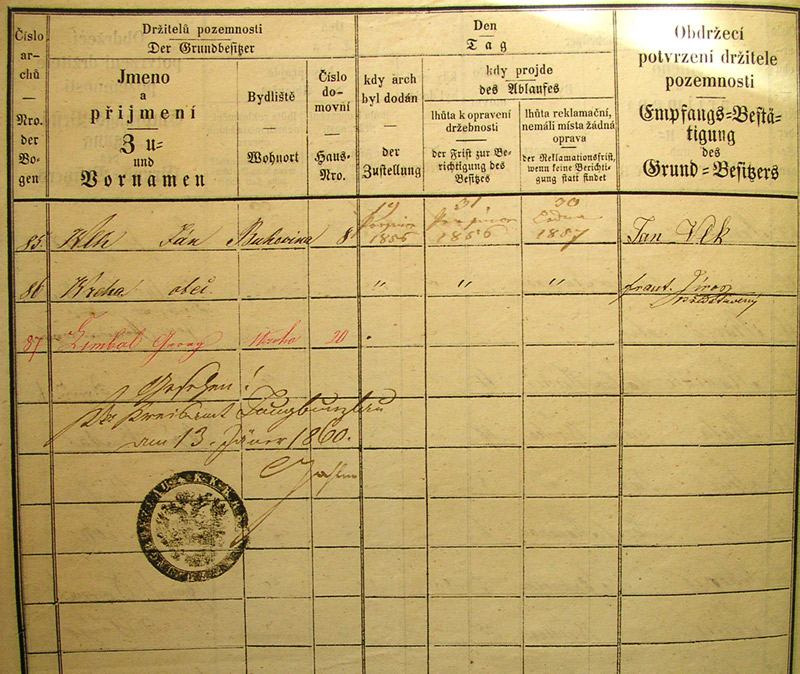 Číslo
ar-
chů
Nro.
der
Bo-
gen
Držitelů pozemnosti
Der Grundbesitzer
Jmeno
a
přijmení
Zu-
und
Vornamen
Bydliště
Wohnort
Číslo
do-
movní
Haus-
Nro.
Den
Tag
kdy arch
byl dodán
der
Zustellung
kdy projde
des Ablaufes
lhůta k opravení
držebnosti
der Frist zur Be-
richtigung des
Besitzes
lhůta reklamační,
nemáli místa žádná
oprava
der Reklamationsfrist,
wenn keine Berichti-
gung statt findet
Obdržecí
potvrzení držitele
pozemnosti
Empfangs-Bestä-
tigung
des
Grund-Besitzers
85 Jan Bukovina 8 19 1856 31 1856 30 1857 Jan Vlk
86 Krcha obec " " " frant.
87 Zimbal Georg Krcha 20
Gesehen!
Kreisamt Jungbunzlau
am 13. Jäner 1860.